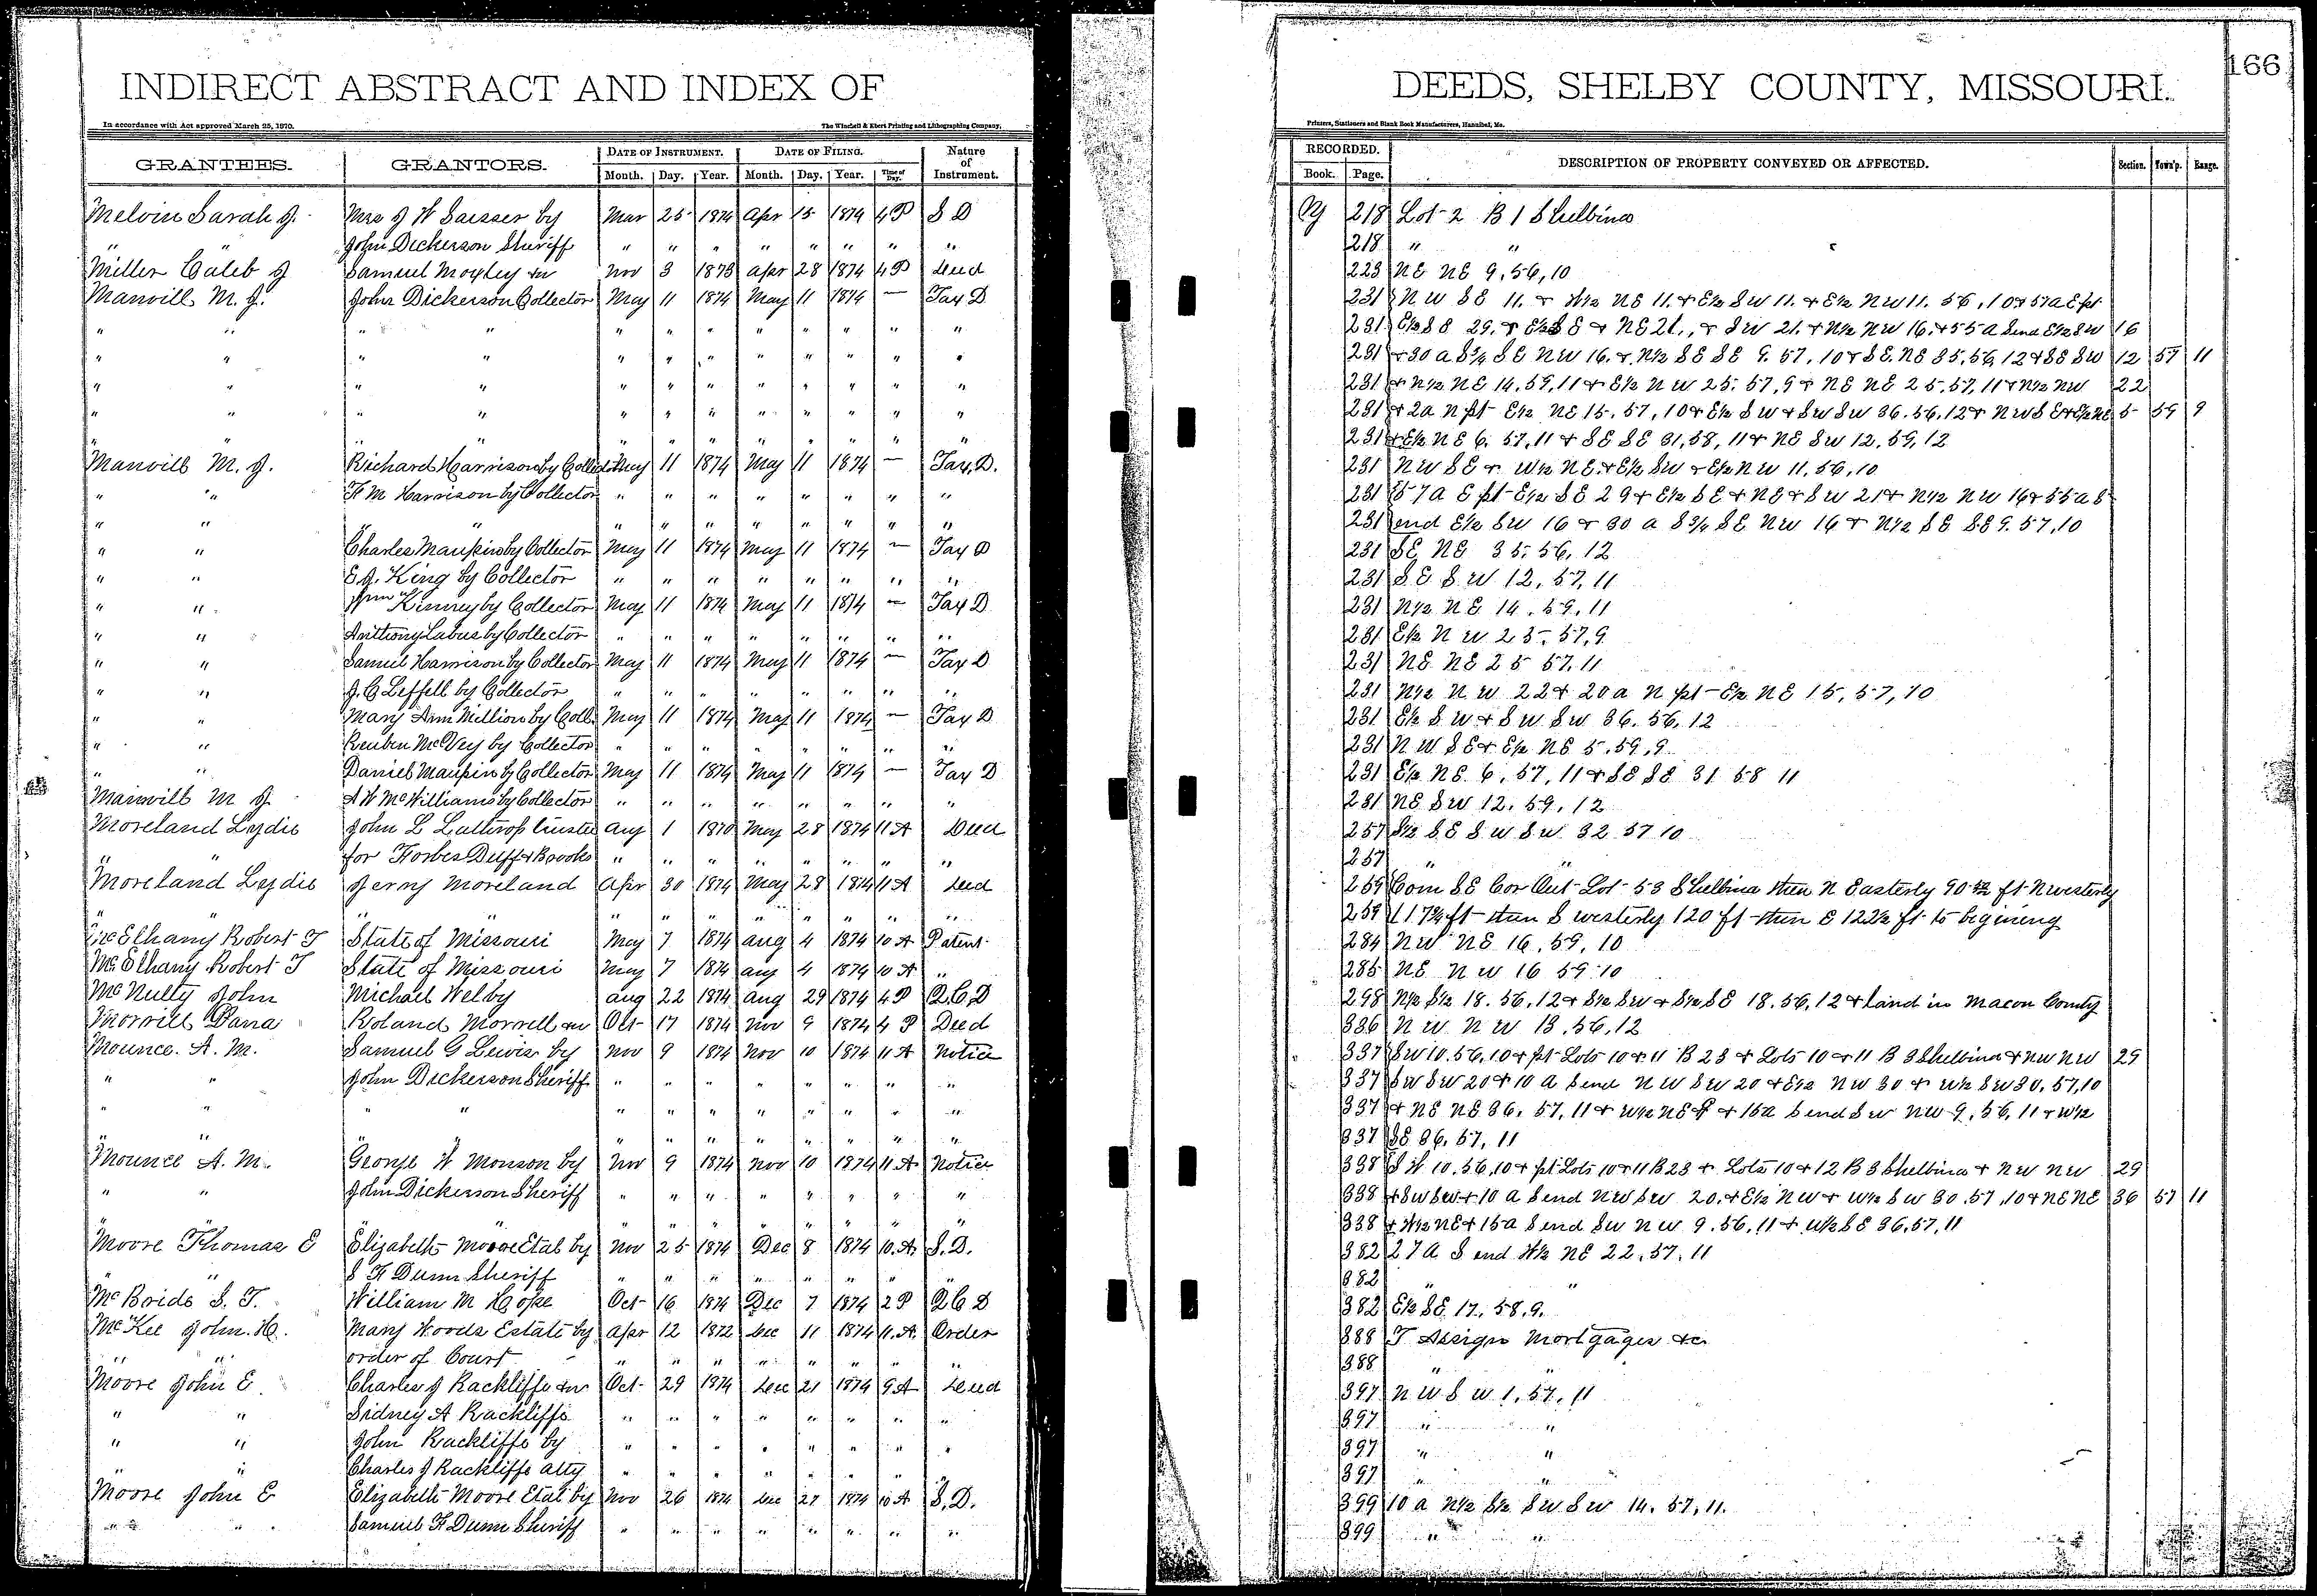 INDIRECT ABSTRACT AND INDEX OF
In accordance with Act approved March 25, 1870.
The Winchell & Ebert Printing and Lithographing Company,
GRANTEES. GRANTORS. DATE OF INSTRUMENT. DATE OF FILING. Nature of Instrument.
Month. Day. Year. Month. Day. Year. Time of Day.
Melvin Sarah J. Mrs J W Saisser by Mar 25 1874 Apr 15 1874 4P S D
" John Dickerson Sheriff " " " " " " " "
Miller Caleb J Samuel Moxley &w Nov 3 1873 Apr 28 1874 4P Deed
Manvill M. J. John Dickerson Collector May 11 1874 May 11 1874 — Tax D
" " " " " " " " " " " "
" " " " " " " " " " " "
" " " " " " " " " " " "
" " " " " " " " " " " "
" " " " " " " "
Manvill M. J. Richard Harrison by Collector May 11 1874 May 11 1874 — Tax D.
" " F M Harrison by Collector " " " " " " " "
" " " " " " " " " " " "
" " Charles Maupin by Collector May 11 1874 May 11 1874 — Tax D
" " E. J. King by Collector " " " " " " " "
" " Wm Kinney by Collector May 11 1874 May 11 1874 — Tax D
" " Anthony Labus by Collector " " " " " " " "
" " Samuel Harrison by Collector May 11 1874 May 11 1874 — Tax D
" " J. C Leffell by Collector " " " " " " " "
" " Mary Ann Million by Coll. May 11 1874 May 11 1874 — Tax D
" " Reuben McVey by Collector " " " " " " " "
" " Daniel Maupin by Collector May 11 1874 May 11 1874 — Tax D
Manvill M J. A W McWilliams by Collector " " " " " " " "
Moreland Lydis John L Lathrop trustee Aug 1 1870 May 28 1874 11 A Deed
" " for Forbes Duff & Brooks " " " " " " " "
Moreland Lydis Jerry Moreland Apr 30 1874 May 28 1874 11 A Deed
" " " " " " " " "
McElhany Robert T State of Missouri May 7 1874 Aug 4 1874 10 A Patent
McElhany Robert T State of Missouri May 7 1874 Aug 4 1874 10 A "
McNulty John Michael Welby Aug 22 1874 Aug 29 1874 4 P Q C D
Morrill Dana Roland Morrell &w Oct 17 1874 Nov 9 1874 4 P Deed
Mounce. A. M. Samuel G Lewis by Nov 9 1874 Nov 10 1874 11 A Notice
" " John Dickerson Sheriff " " " " " " " "
" " " " " " " " " " " "
" " " " " " " " "
Mounce A. M. George W Monson by Nov 9 1874 Nov 10 1874 11 A Notice
" " John Dickerson Sheriff " " " " " " " "
" " " " " " " "
Moore Thomas E Elizabeth Moore Etal by Nov 25 1874 Dec 8 1874 10 A. S. D.
" S F Dunn Sheriff " " " " " " " "
McBride S. T. William M Hope Oct 16 1874 Dec 7 1874 2 P Q C D
McKee John. H. Mary Woods Estate by Apr 12 1872 Dec 11 1874 11. A. Order
" " order of Court " " " " " " " "
Moore John E. Charles J Rackliffe &w Oct 29 1874 Dec 21 1874 9 A Deed
" " Sidney A Rackliffe " " " " " " " "
" " John Rackliffe by " " " " " " " "
" Charles J Rackliffe Atty " " " " " " "
Moore John E Elizabeth Moore Etal by Nov 26 1874 Dec 21 1874 10 A S. D.
" " Samuel F Dunn Sheriff " " " " " " " "
DEEDS, SHELBY COUNTY, MISSOURI.
166
Printers, Stationers and Blank Book Manufacturers, Hannibal, Mo.
RECORDED. DESCRIPTION OF PROPERTY CONVEYED OR AFFECTED. Section. Town'p. Range.
Book. Page.
218 Lot 2 B 1 Shelbina
218 " "
223 NE NE 9, 56, 10
231 NW SE 11. & W½ NE 11. & E½ SW 11. & E½ NW 11. 56, 10 & 57a E pt
231 E½ SE 29. & E½ SE & NE 21., & SW 21. & N½ NW 16. & 55a Send E½ SW 16
231 & 30 a S¾ SE NW 16. & N½ SE SE 9. 57, 10 & SE. NE 35, 56, 12 & SE SW 12 57 11
231 & N½ NE 14, 59, 11 & E½ NW 25. 57, 9 & NE NE 25. 57, 11 & N½ NW 22
231 & 2a N pt E½ NE 15. 57, 10 & E½ SW & SW SW 36. 56, 12 & NW SE & E½ NE 5 59 9
231 & E½ NE 6. 57, 11 & SE SE 31, 58, 11 & NE SW 12, 59, 12
231 NW SE & W½ NE. & E½ SW & E½ NW 11, 56, 10
231 57a E pt E½ SE 29 & E½ SE & NE & SW 21 & N½ NW 16 & 55a S
231 end E½ SW 16 & 30 a S¾ SE NW 16 & N½ SE SE 9. 57, 10
231 SE NE 35, 56, 12
231 SE SW 12, 57, 11
231 N½ NE 14, 59, 11
231 E½ NW 25, 57, 9
231 NE NE 25 57, 11
231 N½ NW 22 & 20a N pt E½ NE 15, 57, 10
231 E½ SW & SW SW 36. 56, 12
231 NW SE & E½ NE 5, 59, 9
231 E½ NE. 6, 57, 11 & SE SE 31 58 11
231 NE SW 12, 59, 12
257 S½ SE SW SW 32 57 10
257 " "
259 Com SE Cor Out Lot 53 Shelbina then N Easterly 90 ft N westerly
259 ft then S westerly 120 ft then E 122½ ft to begining
284 NW NE 16, 59, 10
285 NE NW 16 59 10
298 N½ S½ 18. 56, 12 & S½ SW & S½ SE 18. 56, 12 & Land in Macon County
336 NW NW 13, 56, 12
337 SW 10. 56, 10 & pt Lots 10 & 11 B 23 & Lots 10 & 11 B 3 Shelbina & NW NW 29
337 SW SW 20 & 10 a S end NW SW 20 & E½ NW 30 & W½ SW 30, 57, 10
337 & NE NE 36, 57, 11 & W½ NE & 15a S end SW NW 9, 56, 11 & W½
337 SE 36, 57, 11
338 SW 10, 56, 10 & pt Lots 10 & 11 B 23 & Lots 10 & 12 B 3 Shelbina & NW NW 29
338 & SW SW & 10 a S end NW SW 20. & E½ NW & W½ SW 30. 57, 10 & NE NE 36 57 11
338 & W½ NE & 15a S end SW NW 9. 56, 11 & W½ SE 36, 57, 11
382 27 A S end W½ NE 22, 57, 11
382 " "
382 E½ SE 17, 58, 9.
388 T Assign Mortgages &c.
388 " "
397 NW SW 1, 57, 11
397 " "
397 " "
397 " "
399 10 a N½ S½ SW SW 14. 57, 11.
399 " "